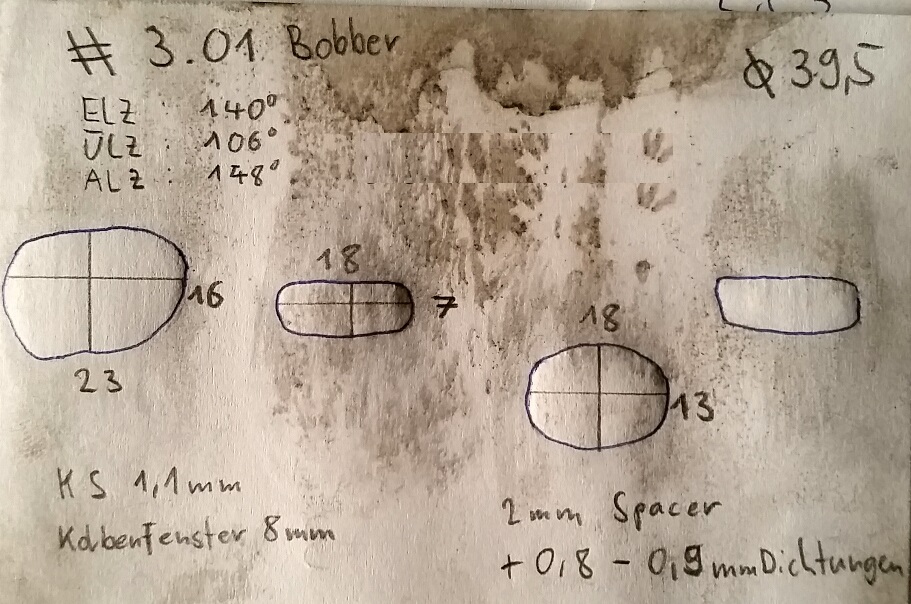 # 3.01 Bobber
Φ 39,5
ELZ : 140°
ÜLZ : 106°
ALZ : 148°
18
16
7
18
23
13
KS 1,1mm
Kolbenfenster 8mm
2mm Spacer
+ 0,8 - 0,9mm Dichtungen